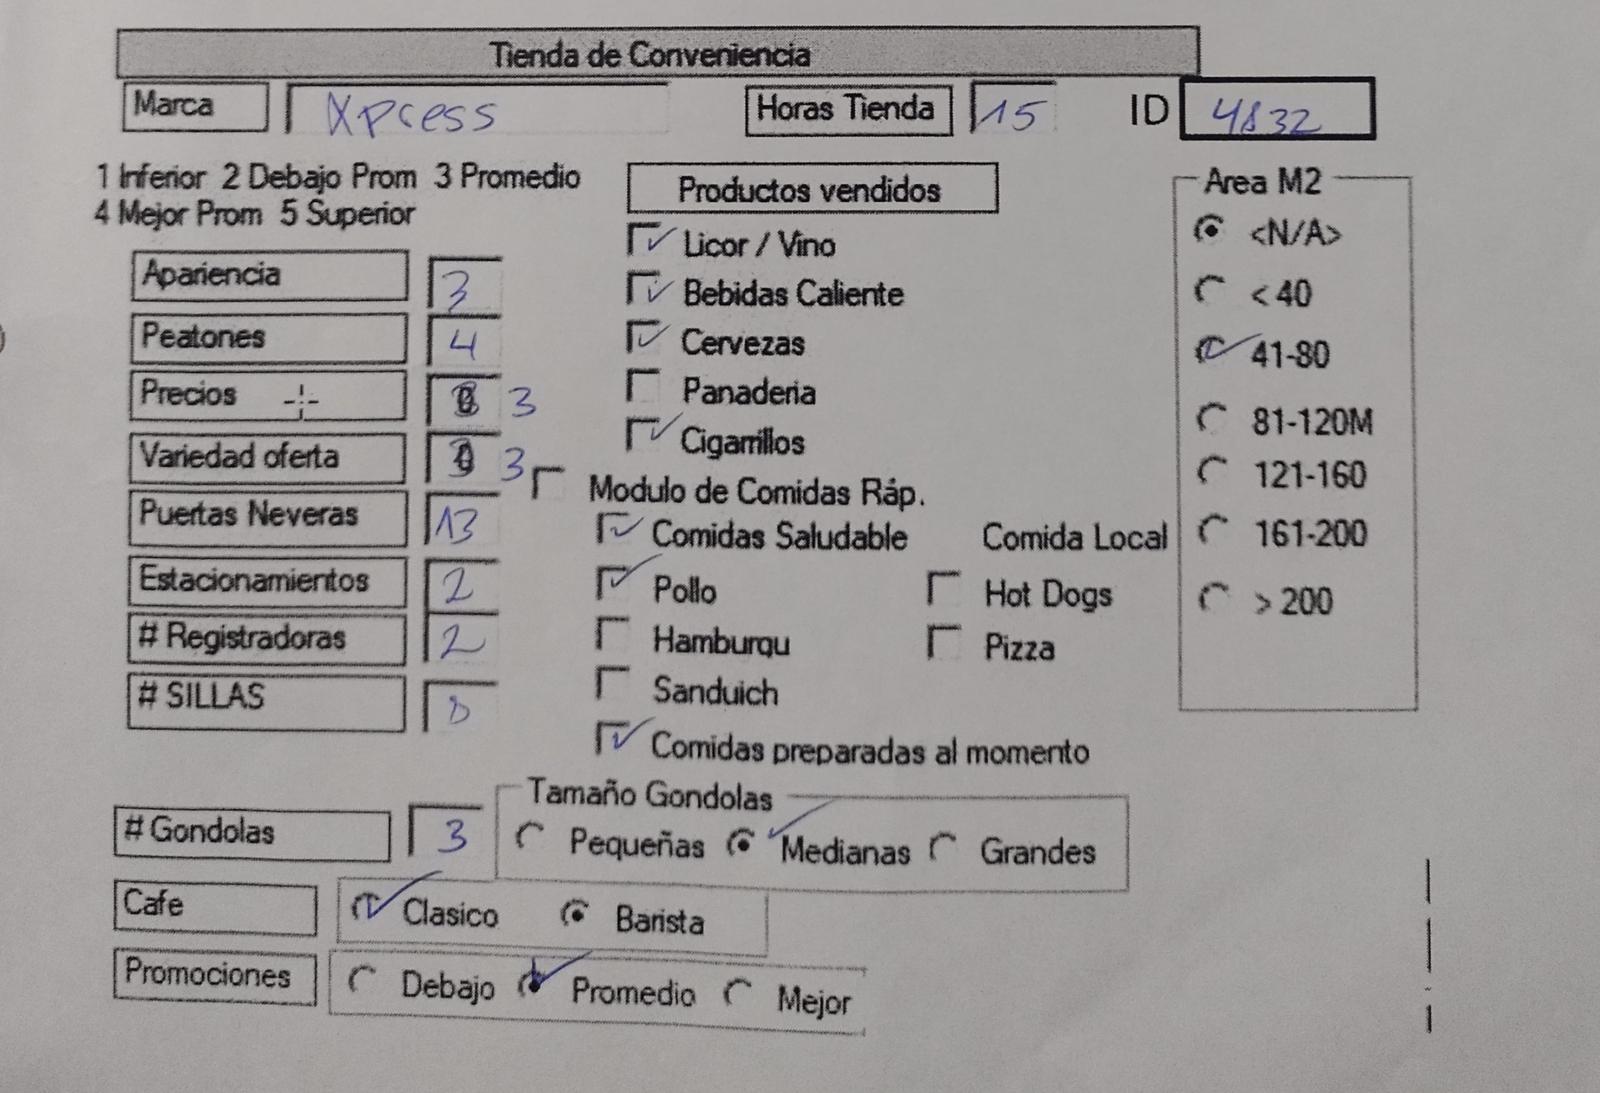 Tienda de Conveniencia
Marca Xpress Horas Tienda 15 ID 4832
1 Inferior 2 Debajo Prom 3 Promedio
4 Mejor Prom 5 Superior
Productos vendidos
Area M2
Licor / Vino
<N/A>
Apariencia 3
Bebidas Caliente
< 40
Peatones 4
Cervezas
41-80
Precios 3
Panaderia
81-120M
Variedad oferta 3
Cigarrillos
121-160
Modulo de Comidas Ráp.
Puertas Neveras 13
Comidas Saludable
Comida Local
161-200
Estacionamientos 2
Pollo
Hot Dogs
> 200
# Registradoras 2
Hamburqu
Pizza
# SILLAS 0
Sanduich
Comidas preparadas al momento
# Gondolas 3
Tamaño Gondolas
Pequeñas Medianas Grandes
Cafe Clasico Barista
Promociones Debajo Promedio Mejor